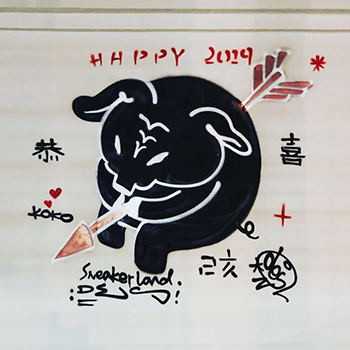 HAPPY 2019
恭
喜
KOKO
己亥
Sneakerland